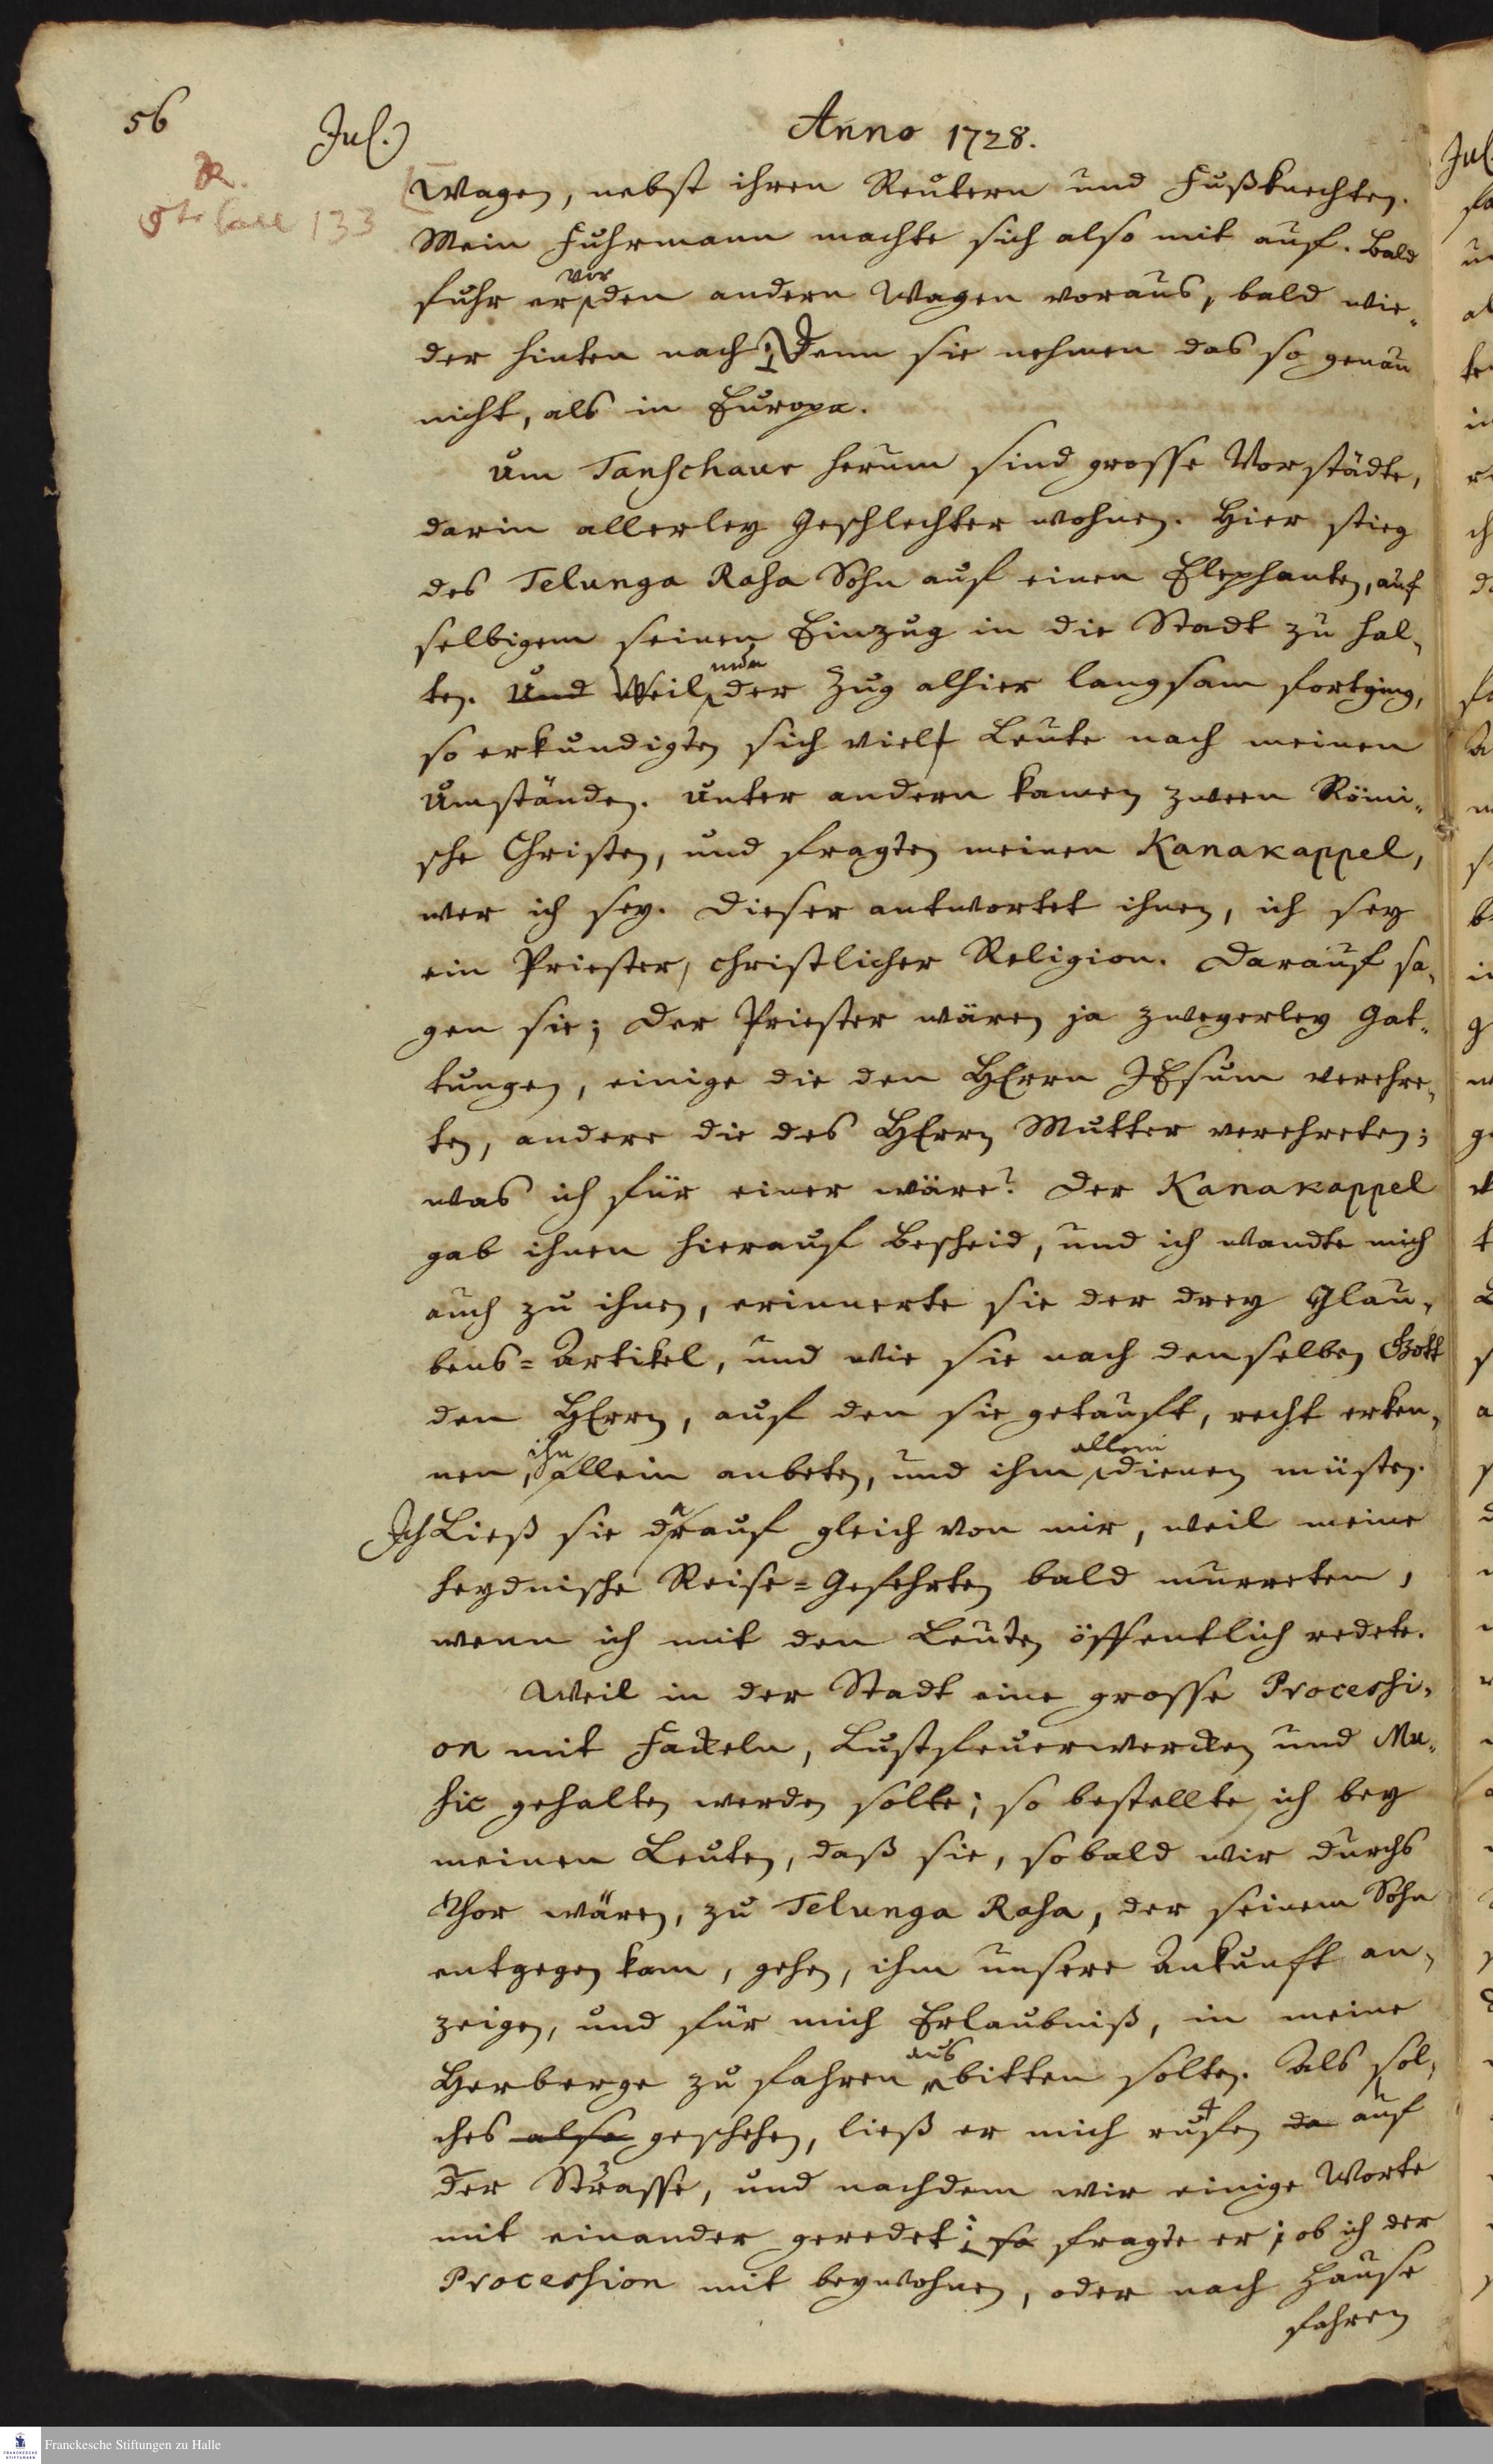 56
Jul.
Anno 1728.
133
Wagen, nebst ihren Reutern und Fußknechten.
Mein Fuhrmann machte sich also mit auf. Bald
vor
fuhr er den andern Wagen voraus, bald wie-
der hinten nach; Denn sie nehmen das so genau
nicht, als in Europa.
Um Tanschaur herum sind grosse Vorstädte,
darin allerley Geschlechter wohnen. Hier stieg
des Telunga Raha Sohn auf einen Elephanten, auf
selbigem seinen Einzug in die Stadt zu hal-
nun
ten. Und Weil der Zug alhier langsam fortging,
so erkundigten sich viele Leute nach meinen
Umständen. Unter andern kamen zween Römi-
sche Christen, und fragten meinen Kanakappel,
wer ich sey. Dieser antwortet ihnen, ich sey
ein Priester christlicher Religion. Darauf sa-
gen sie; Der Priester wären ja zweyerley Gat-
tungen, einige die den HErrn JEsum verehre-
ten, andere die des HErrn Mutter verehreten;
was ich für einer wäre? Der Kanakappel
gab ihnen hierauf Bescheid, und ich wandte mich
auch zu ihnen, erinnerte sie der drey Glau-
bens=Artikel, und wie sie nach denselben Gott
den HErrn, auf den sie getauft, recht erken-
ihn allein
nen, allein anbeten, und ihm dienen müsten.
Ich Ließ sie darauf gleich von mir, weil meine
heydnische Reise=Gefehrten bald murreten,
wenn ich mit den Leuten öffentlich redete.
Weil in der Stadt eine grosse Processi-
on mit Fackeln, Lustfeuerwercken und Mu-
sic gehalten werden solte; so bestellte ich bey
meinen Leuten, daß sie, sobald wir durchs
Thor wären, zu Telunga Raha, der seinem Sohn
entgegen kam, gehen, ihm unsere Ankunft an-
zeigen, und für mich Erlaubniß, in meine
aus
Herberge zu fahren bitten solten. Als sol-
ches also geschehen, ließ er mich rufen da auf
der Strasse, und nachdem wir einige Worte
mit einander geredet; so fragte er, ob ich der
Procession mit beywohnen, oder nach Hause
fahren
Franckesche Stiftungen zu Halle